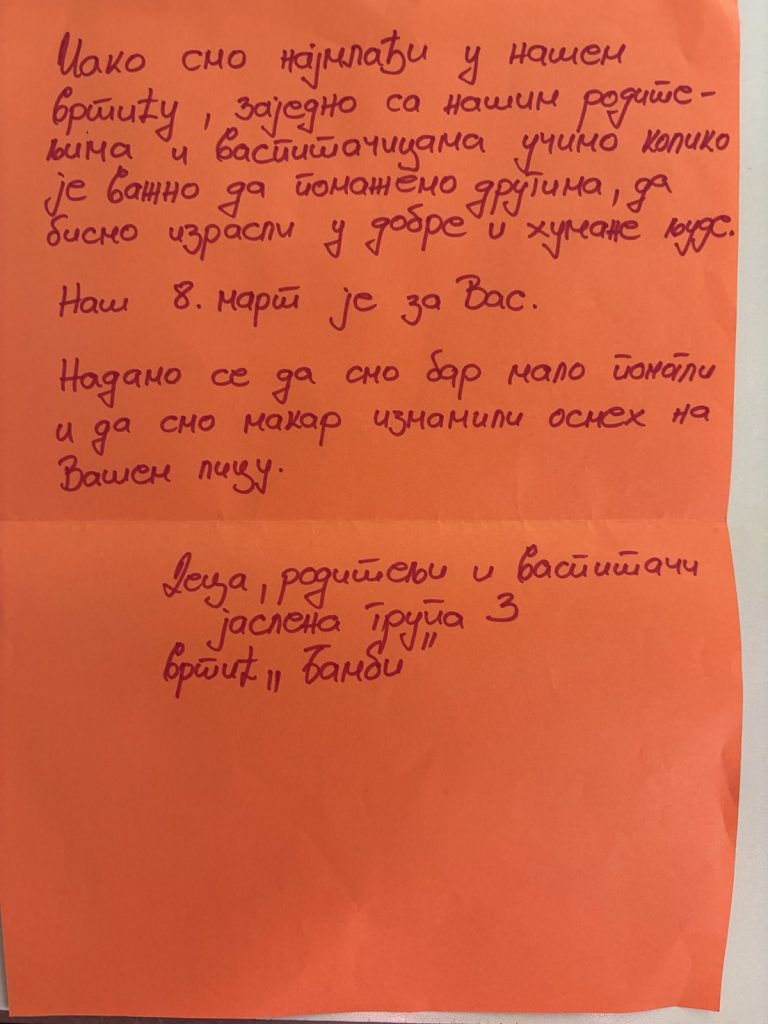 Иако смо најмлађи у нашем
вртићу, заједно са нашим родите-
љима и васпитачицама учимо колико
је важно да помажемо другима, да
бисмо израсли у добре и хумане људе.
Наш 8. март је за Вас.
Надамо се да смо бар мало помогли
и да смо макар измамили осмех на
Вашем лицу.
Деца, родитељи и васпитачи
јаслена група 3
вртић „Бамби"